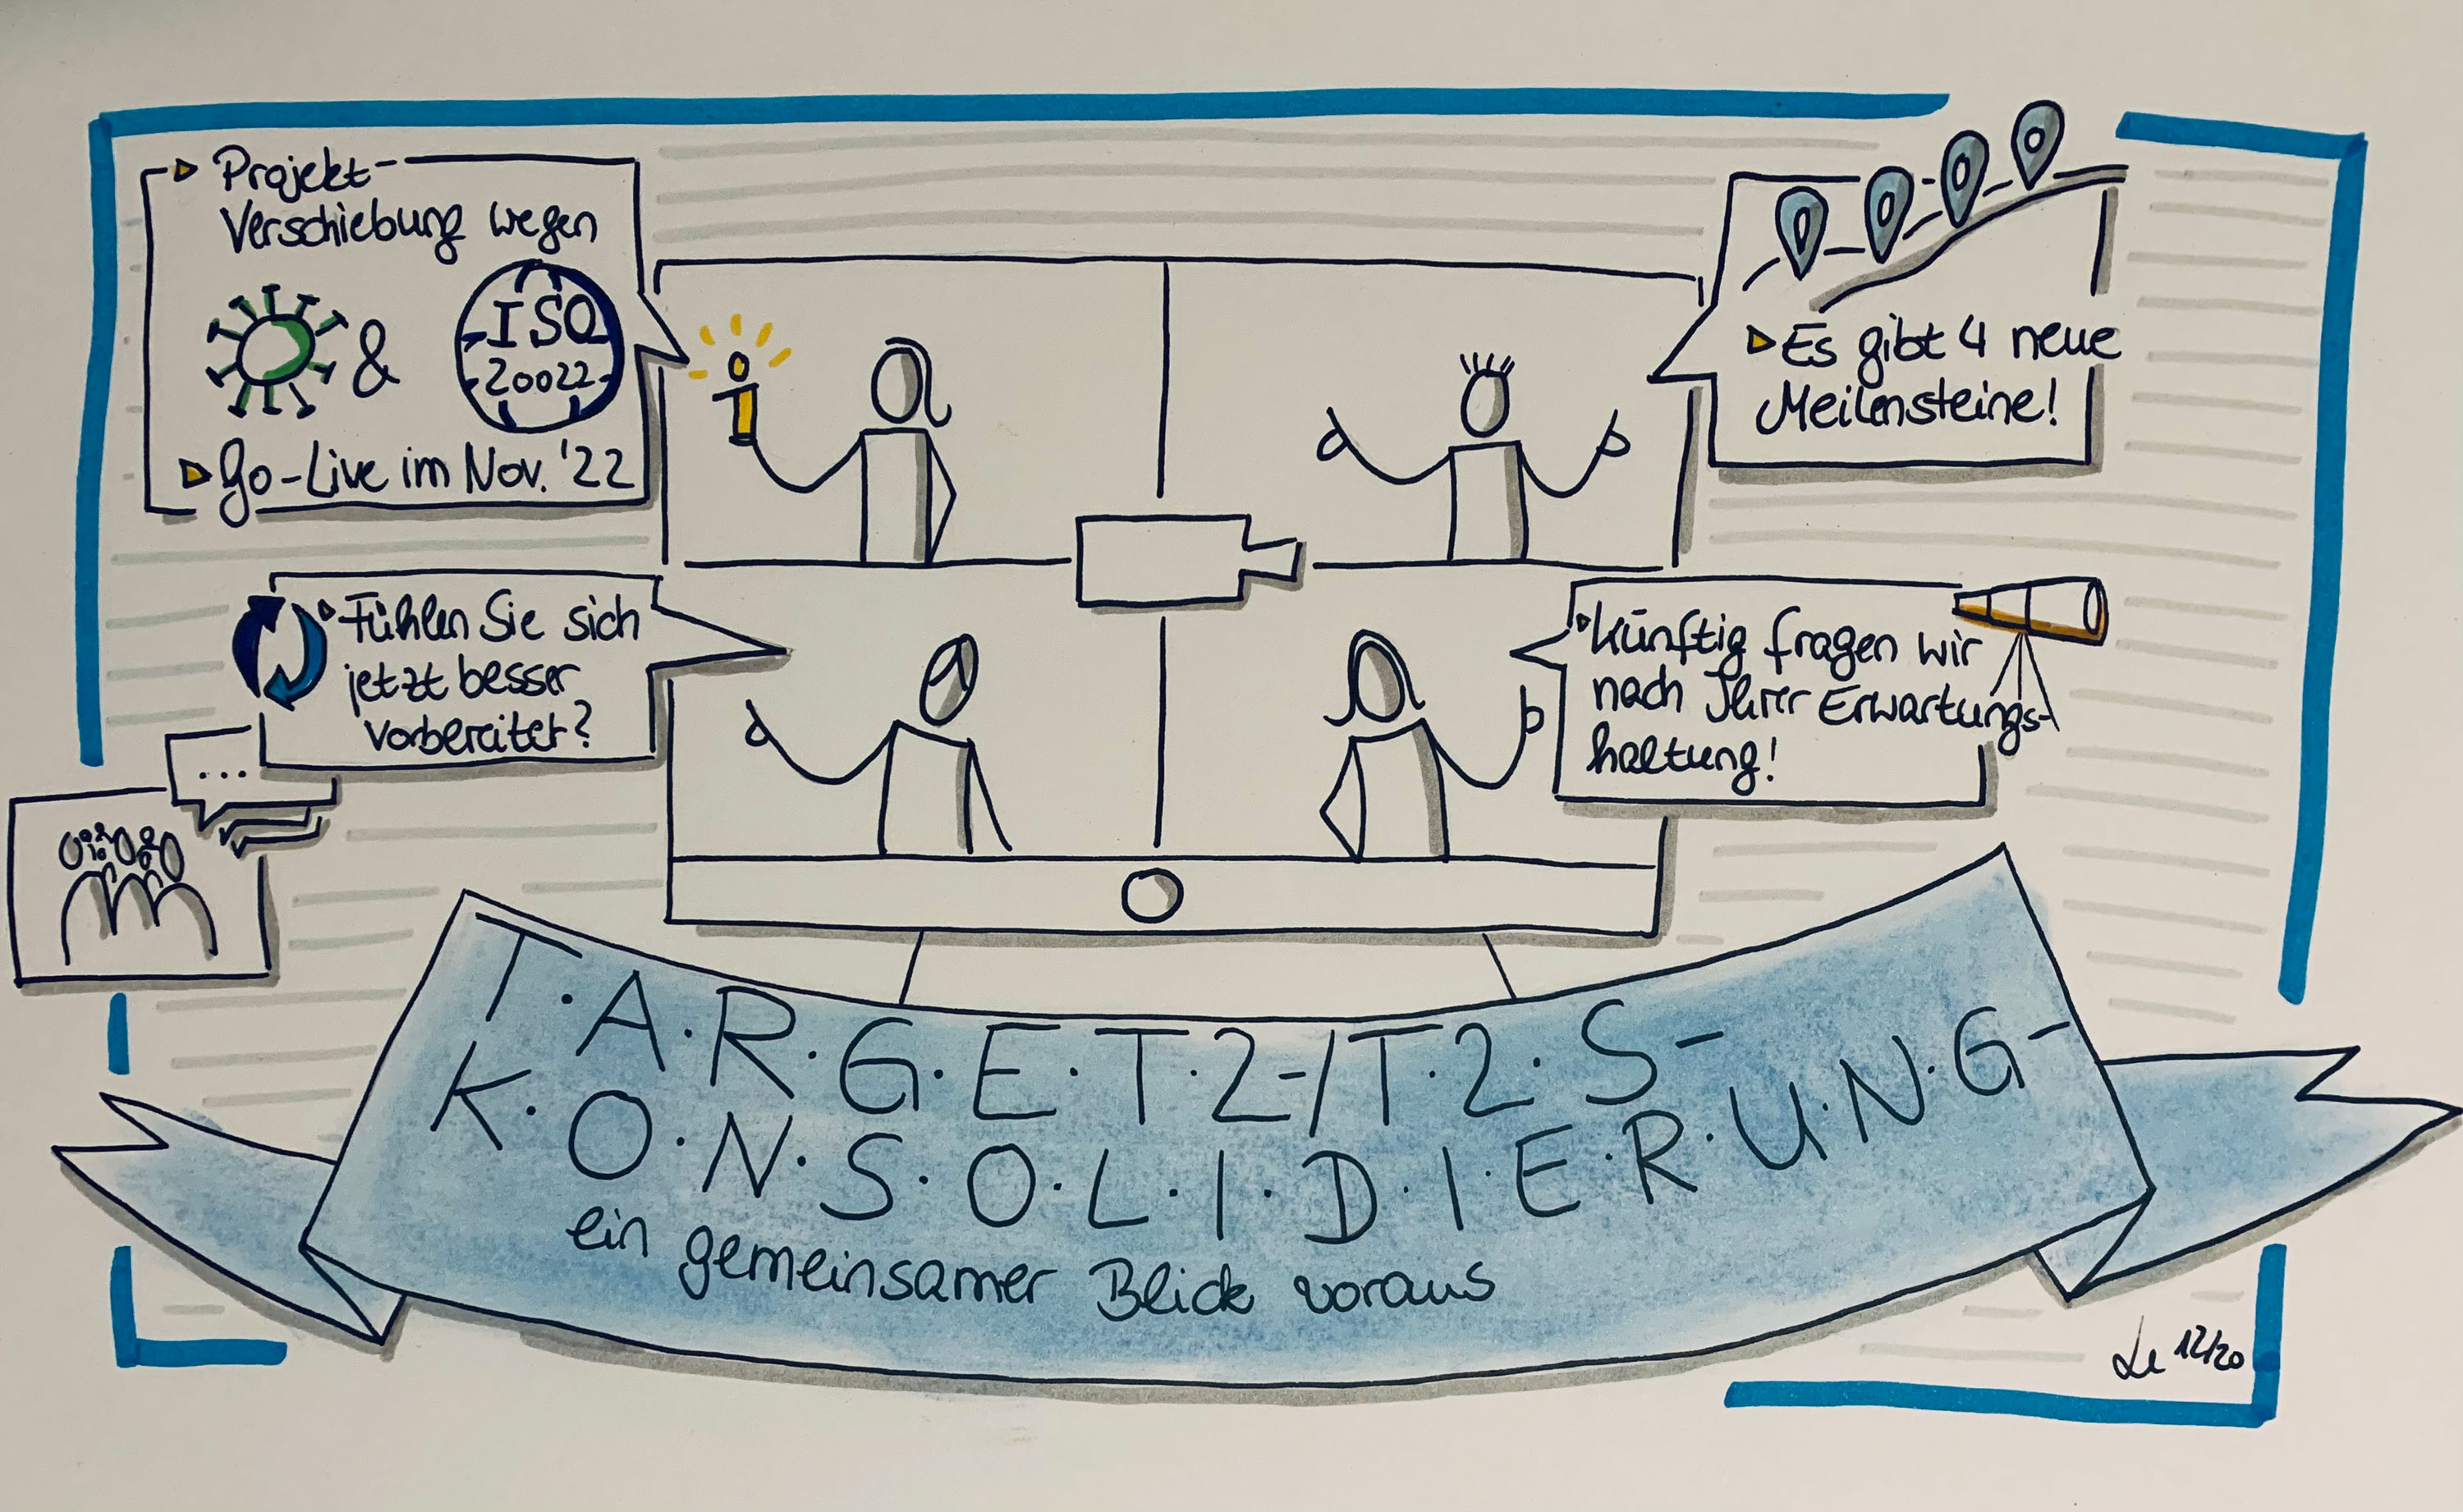 Projekt-
Verschiebung wegen
&
ISO
20022
Go-Live im Nov. '22
Es gibt 4 neue
Meilensteine!
Fühlen Sie sich
jetzt besser
vorbereitet?
...
Künftig fragen wir
nach Ihrer Erwartungs-
haltung!
T·A·R·G·E·T·2-/T·2·S-
K·O·N·S·O·L·I·D·I·E·R·U·N·G-
ein gemeinsamer Blick voraus
12/20